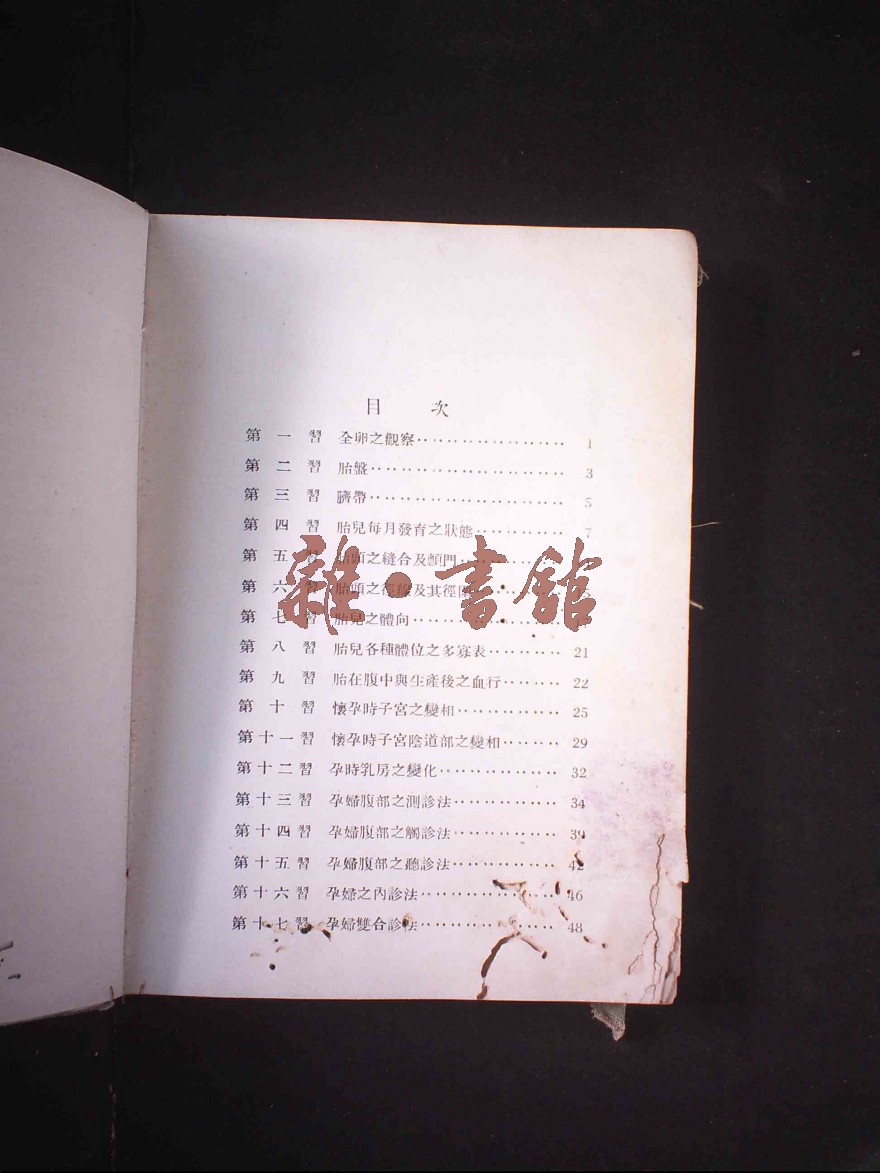 目 次
第 一 習 全卵之觀察······················ 1
第 二 習 胎盤·························· 3
第 三 習 臍帶·························· 5
第 四 習 胎兒每月發育之狀態·········· 7
第 五 習 胎頭之縫合及顖門
第 六 習 胎頭之徑線及其徑
第 七 習 胎兒之體向·················· 17
第 八 習 胎兒各種體位之多寡表········· 21
第 九 習 胎在腹中與生產後之血行······· 22
第 十 習 懷孕時子宮之變相············ 25
第十一習 懷孕時子宮陰道部之變相······· 29
第十二習 孕時乳房之變化·············· 32
第十三習 孕婦腹部之測診法············ 34
第十四習 孕婦腹部之觸診法············ 39
第十五習 孕婦腹部之聽診法············ 42
第十六習 孕婦之內診法················ 46
第十七習 孕婦雙合診法················ 48
雜·書館